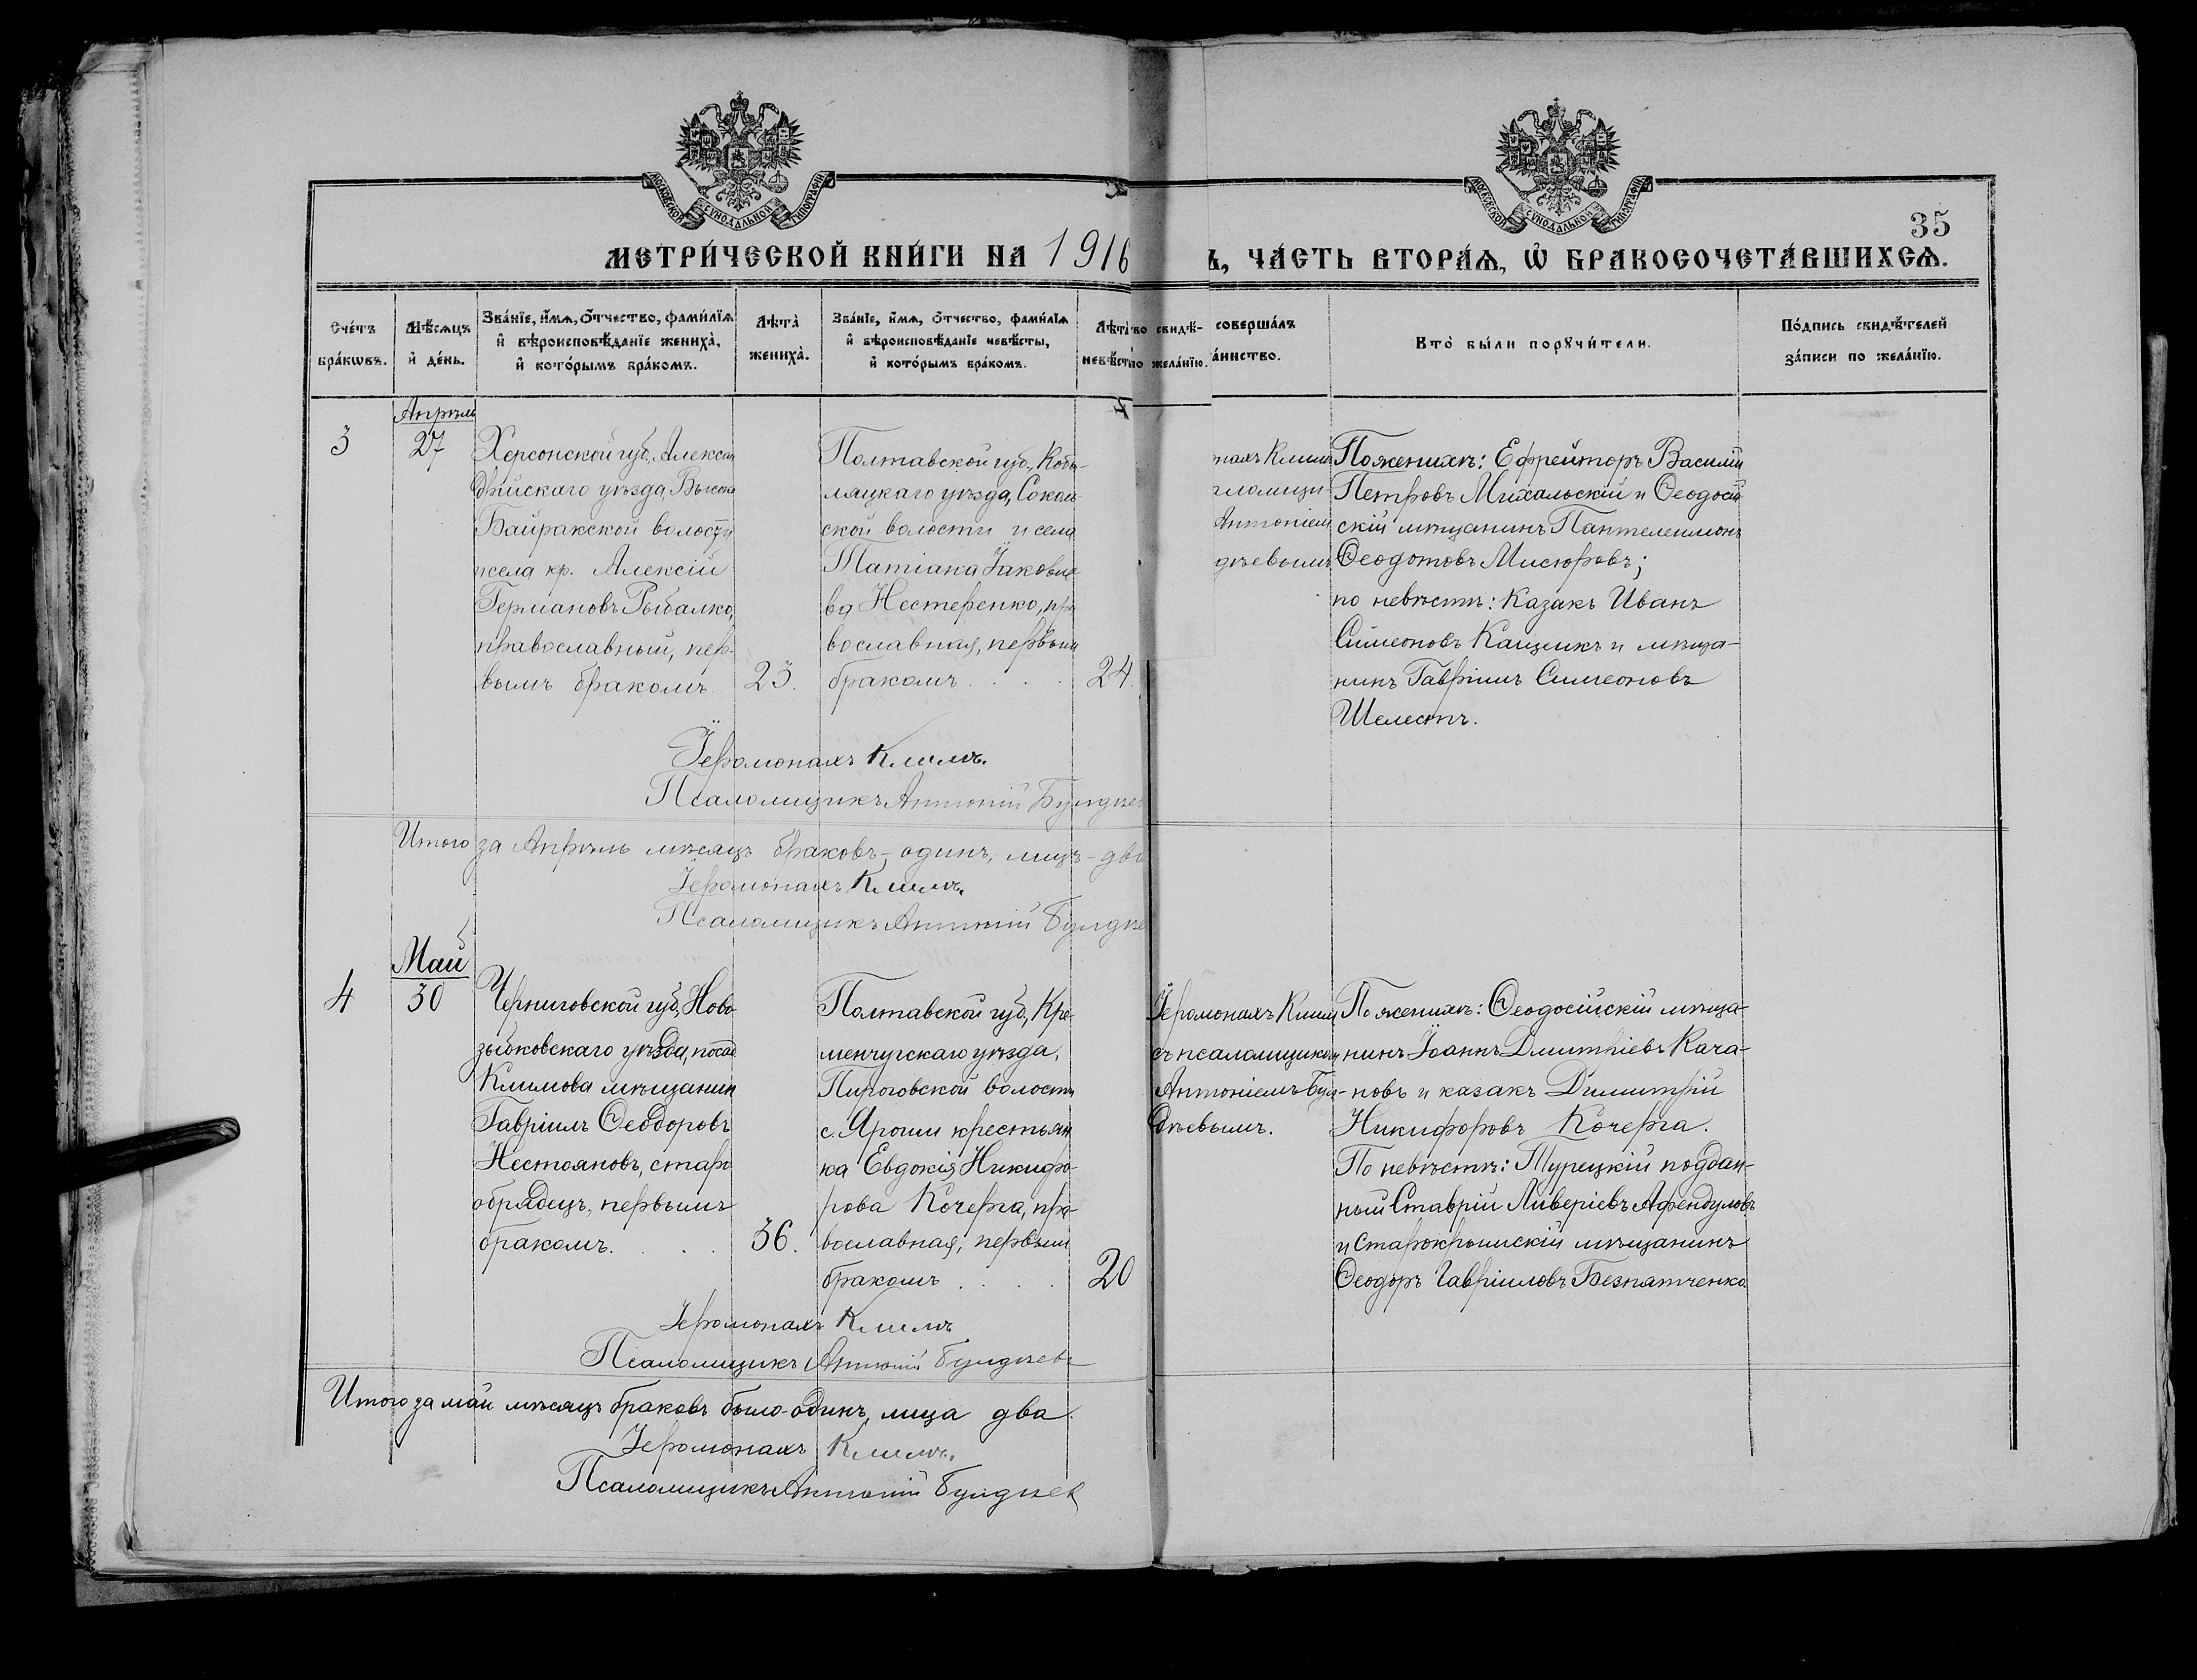 МОСКОВСКОЙ СУНОДАЛЬНОЙ ТИПОГРАФІИ
МОСКОВСКОЙ СУНОДАЛЬНОЙ ТИПОГРАФІИ
35
МЕТРИ́ЧЕСКОЙ КНИ́ГИ НА 1916
Ъ, ЧА́СТЬ ВТОРА́Ѧ, Ѡ҆ БРАКОСОЧЕТА́ВШИХСѦ.
Сче́тъ бра́кѡвъ.
Мѣ́сѧцъ и҆ де́нь.
Зва́нїе, и҆́мѧ, ѻ҆́тчество, фами́лїѧ и҆ вѣроисповѣ́данїе жениха̀, и҆ кото́рымъ бра́комъ.
Лѣ́та̀ жениха̀.
Зва́нїе, и҆́мѧ, ѻ҆́тчество, фами́лїѧ и҆ вѣроисповѣ́данїе невѣ́сты, и҆ кото́рымъ бра́комъ.
Лѣ́та̀ невѣ́ст
во свидѣ- по жела́нїю.
соверша́лъ а́инство.
Кто̀ бы́ли порꙋчи́тели.
По́дпись свидѣ́телей за́писи по жела́нїю.
Апрѣль
3
27
Херсонской губ., Алексан
дрійскаго уѣзда, Высоко
Байракской волости
и села кр. Алексій
Германовъ Рыбалко,
православный, пер-
вымъ бракомъ.
23.
Полтавской губ., Кобы-
ляцкаго уѣзда, Соколь-
ской волости и села
Татіана Іаковле-
ва Нестеренко, пра
вославная, первым
бракомъ . . .
24.
нахъ Клим
аломщи-
Антоніем
дѣевымъ
По женихѣ: Ефрейторъ Василій
Петровъ Михальскій и Ѳеодосій
скій мѣщанинъ Пантелеимонъ
Ѳеодотовъ Мисюровъ;
по невѣстѣ: Казакъ Иванъ
Симеоновъ Кащикъ и мѣща-
нинъ Гавріилъ Симеоновъ
Шелестъ.
Іеромонахъ Климъ.
Псаломщикъ Антоній Булдѣев
Итого за Апрѣль мѣсяцъ браковъ - одинъ, лицъ - два
Іеромонахъ Климъ.
Псаломщикъ Антоній Булдѣе
Май
4
30
Черниговской губ., Ново-
зыбковскаго уѣзда, посад
Климова мѣщанин
Гавріилъ Ѳеодоровъ
Нестояновъ, старо
обрядецъ, первымъ
бракомъ. . . .
36.
Полтавской губ., Кре-
менчугскаго уѣзда,
Пироговской волости
с. Яроши крестьян
ка Евдокія Никифо-
рова Кочерга, пра-
вославная, первым
бракомъ . . . .
20
Іеромонахъ Клим
съ псаломщиком
Антоніемъ Бул-
дѣевымъ.
По женихѣ: Ѳеодосійскій мѣща-
нинъ Іоаннъ Дмитріевъ Кача-
новъ и казакъ Димитрій
Никифоровъ Кочерга.
По невѣстѣ: Турецкій поддан-
ный Ставрій Ливеріевъ Афендуловъ
и Старокрымскій мѣщанинъ
Ѳеодоръ Гавріиловъ Безпятченко.
Іеромонахъ Климъ
Псаломщикъ Антоній Булдѣевъ
Итого за май мѣсяцъ браковъ было - одинъ, лица два.
Іеромонахъ Климъ.
Псаломщикъ Антоній Булдѣев